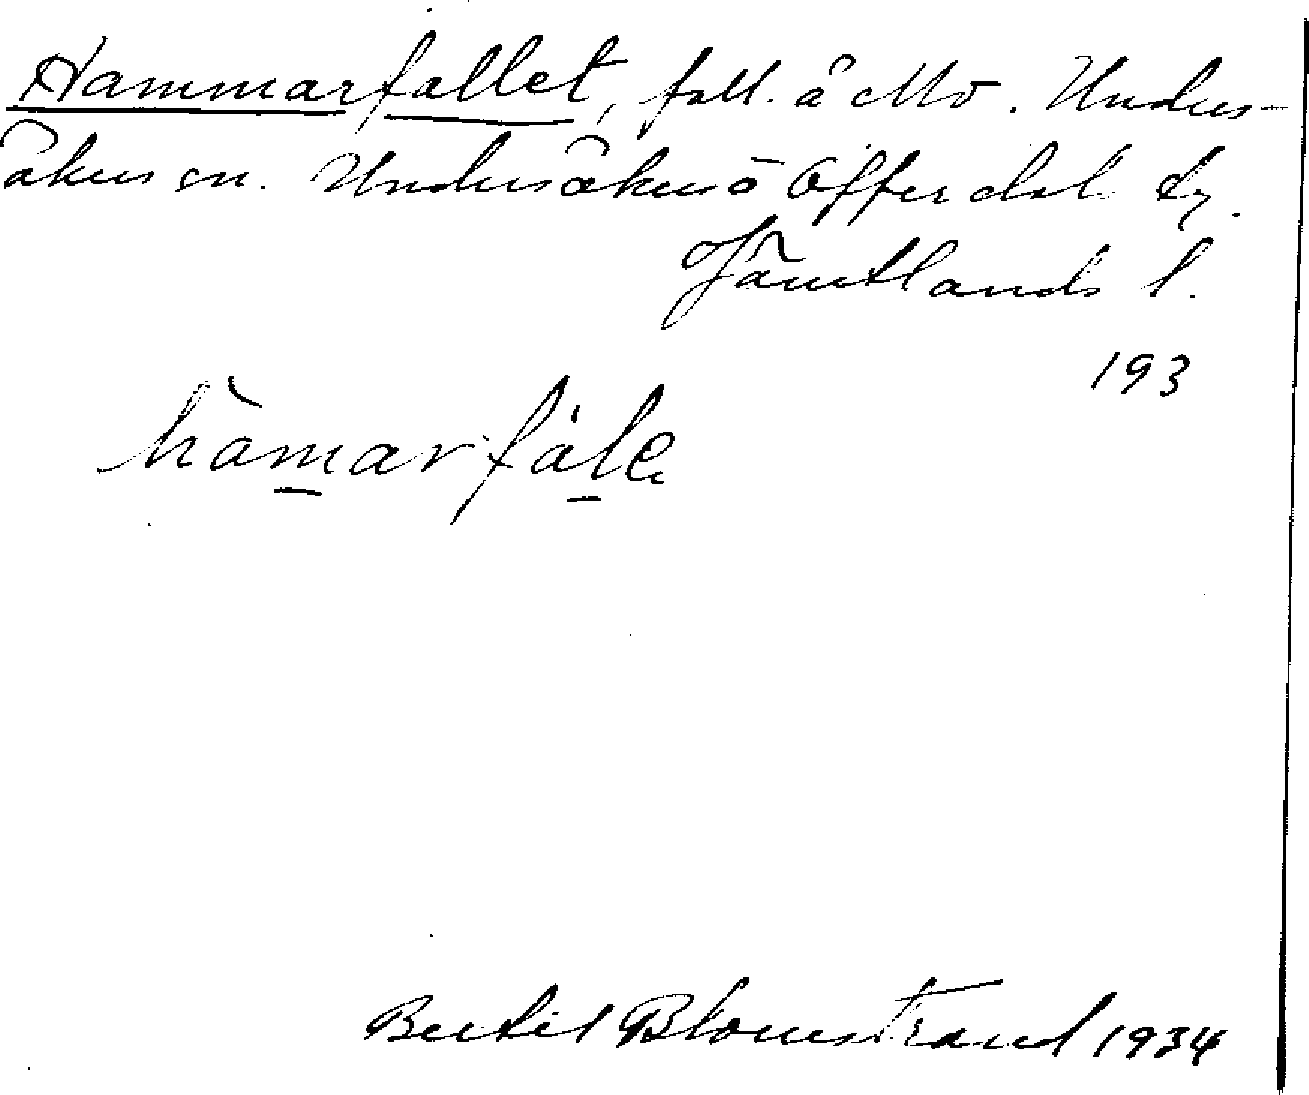 Hammarfallet, fall. å Mo. Unders-
åkers sn. Undersåkers o Offerdal tg.
Jämtlands l.
193
hàmarfále
Bertil Blomstrand 1934